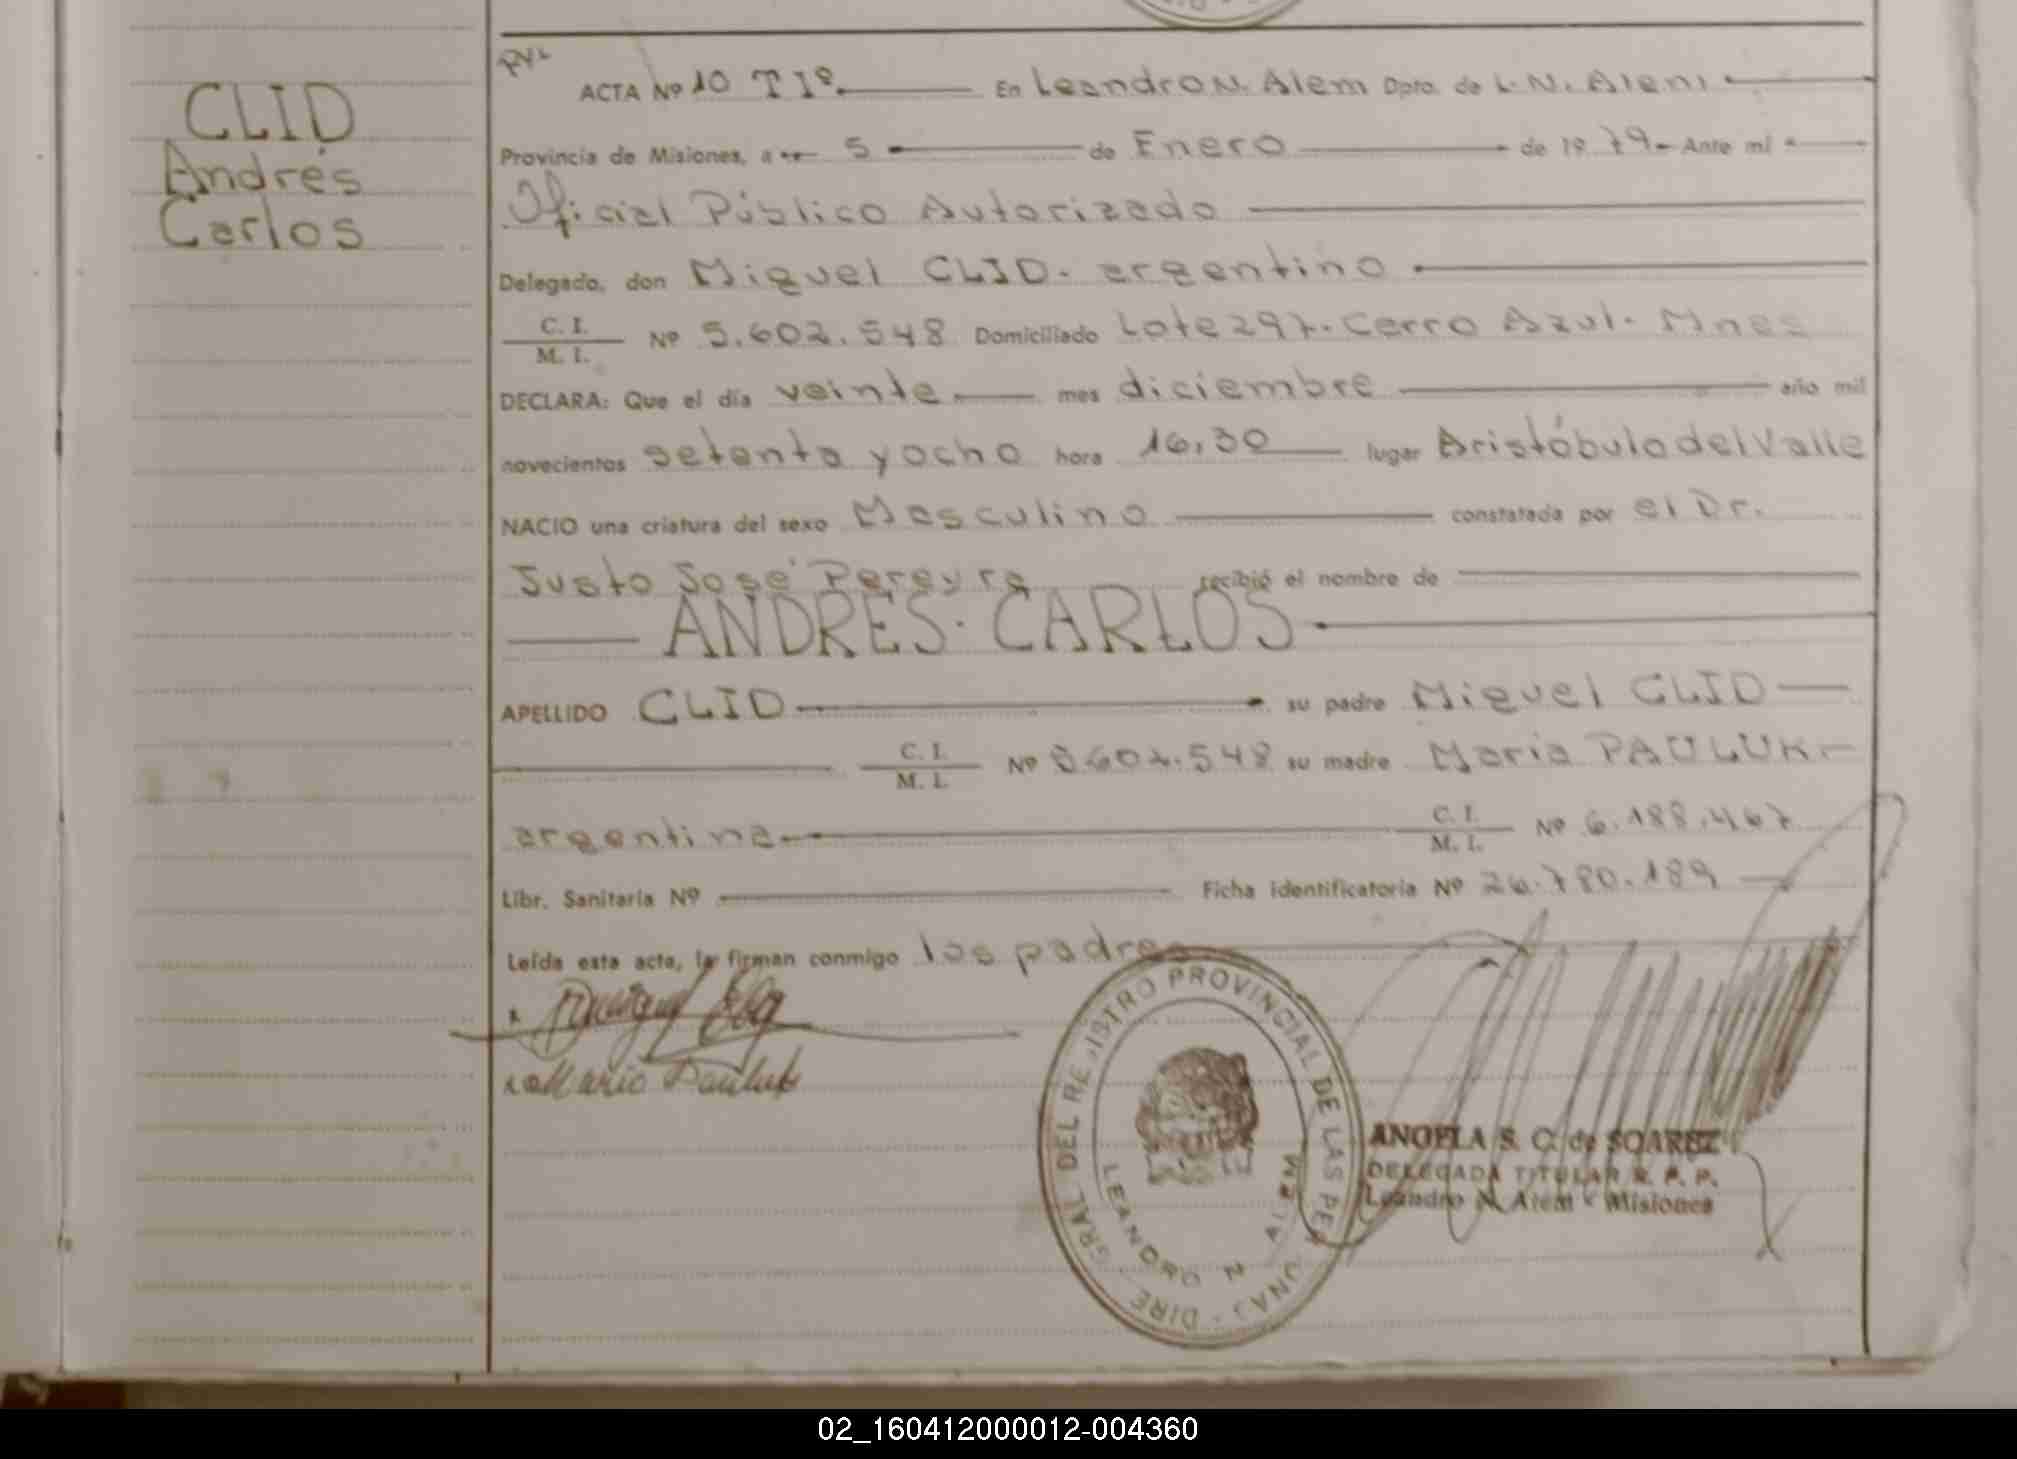 CLID
Andrés
Carlos
ACTA Nº 10 T Iº. En Leandro N. Alem Dpto. de L. N. Alem
Provincia de Misiones, a 5 de Enero de 1979 Ante mí
Oficial Público Autorizado
Delegado, don Miguel CLID. argentino
C. I.
M. I. Nº 5.602.548 Domiciliado Lote 297. Cerro Azul. Mnes
DECLARA: Que el día veinte mes diciembre año mil
novecientos setenta y ocho hora 16,30 lugar Aristóbulo del Valle
NACIO una criatura del sexo Masculino constatada por el Dr.
Justo José Pereyra recibió el nombre de
ANDRES. CARLOS
APELLIDO CLID su padre Miguel CLID
C. I.
M. I. Nº 5.602.548 su madre María PAULUK
argentina C. I.
M. I. Nº 6.188.467
Libr. Sanitaria Nº Ficha identificatoria Nº 26.780.189
Leída esta acta, la firman conmigo los padres
Maria Pauluk
DIRE GRAL DEL REGISTRO PROVINCIAL DE LAS PER
LEANDRO N
ANGELA S. C. de SOAREZ
DELEGADA TITULAR R. P. P.
Leandro N. Alem - Misiones
02_160412000012-004360